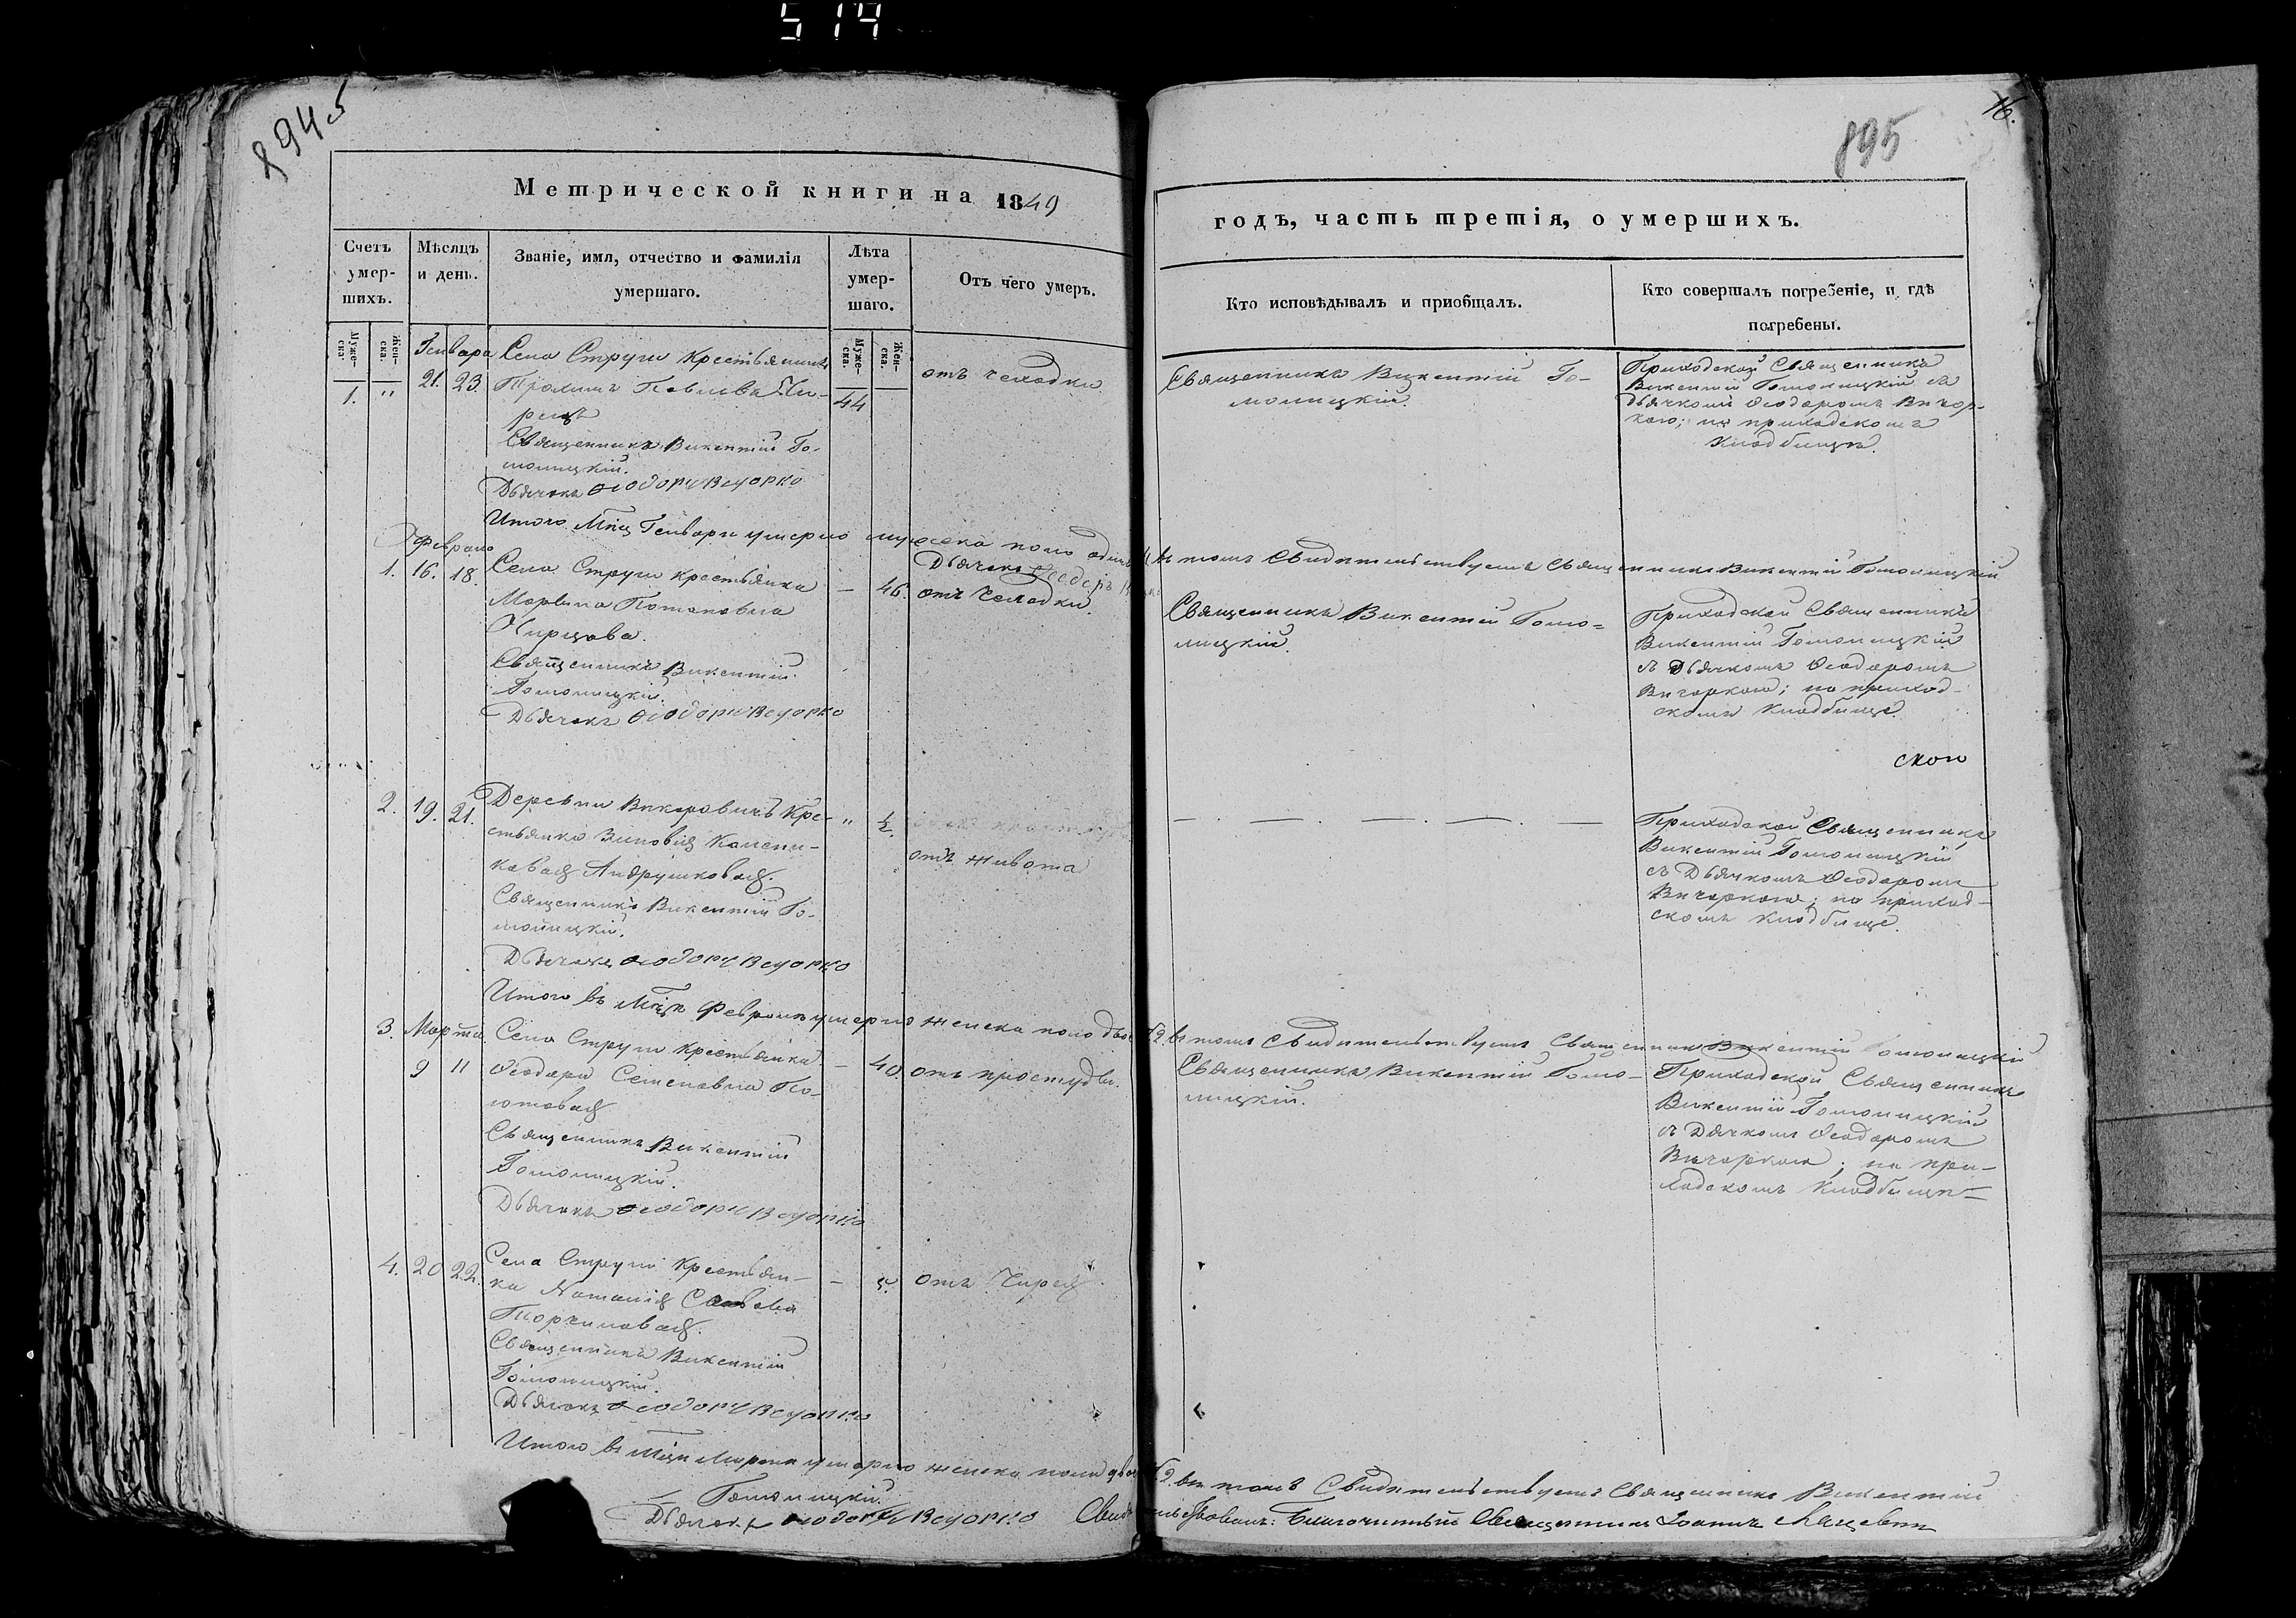 514
894
5
16.
895
Метрической книги на 1849
годъ, часть третія, о умершихъ.
Счетъ умер-
шихъ.
Мѣсяцъ
и день.
Званіе, имя, отчество и фамилія
умершаго.
Лѣта
умер-
шаго.
Отъ чего умеръ.
Кто исповѣдывалъ и приобщалъ.
Кто совершалъ погребеніе, и гдѣ
погребены.
Муже-
ска.
Жен-
ска.
Муже-
ска.
Жен-
ска.
Генваря
1. " 21. 23.
Села Струги Крестьянинъ
Павлова
44
отъ чахотки
Священникъ Викентій Го-
молицкій.
Дьячекъ Ѳеодоръ Вечорко
Священникъ Викентій Го-
молицкій.
Приходской Священникъ
Викентій Гомолицкій съ
Дьячкомъ Ѳеодоромъ Вичор-
кою; на приходскомъ
кладбищѣ.
Итого Мцѣ Генварѣ умерло мужеска пола одинъ
въ томъ свидѣтельствуетъ Священникъ Викентій Гомолицкій
Дьячекъ Ѳеодоръ
Февраль
1. 16. 18.
Села Струги крестьянка
Потаповна
Чирцова.
— 46. отъ чахотки.
Священникъ Викентій
Гомолицкій.
Дьячекъ Ѳеодоръ Вечорко
Священникъ Викентій Гомо=
лицкій.
Приходской Священникъ
Викентій Гомолицкій
съ Дьячкомъ Ѳеодоромъ
Вичоркою; на приход-
скомъ кладбище.
ской
2. 19. 21.
Деревни Викоровичъ Кре-
стьянка Зиновія
Андрушковая.
" ½.
отъ живота
Священникъ Викентій Го-
молицкій.
Дьячекъ Ѳеодоръ Вечорко
— . — . — . — . —
Приходской Священникъ
Викентій Гомолицкій
съ Дьячкомъ Ѳеодоромъ
Вичоркою; на приход-
скомъ кладбище.
Итого въ Мцѣ Февралѣ умерло женска пола двое
2. въ томъ свидѣтельствуетъ Священникъ Викентій Гомолицкій
3. Марта
9 11
Села Струги крестьянка
Ѳеодора Семеновна
— 40. отъ простуды.
Священникъ Викентій
Гомолицкій.
Дьячекъ Ѳеодоръ Вечорко
Священникъ Викентій Гомо-
лицкій.
Приходской Священникъ
Викентій Гомолицкій
съ Дячкомъ Ѳеодоромъ
Вичоркою; на при-
ходскомъ кладбищѣ
4. 20 22.
Села Струги крестьян-
ка Наталія
— 5. отъ чирея.
Священникъ Викентій
Гомолицкій.
Дьячекъ Ѳеодоръ Вечорко
Итого въ Мцѣ Мартѣ умерло женска пола двое
2. въ томъ свидѣтельствуетъ Священникъ Викентій
Гомолицкій.
Дьячекъ Ѳеодоръ Вечорко
Свидѣтельствовалъ: Благочинный Священникъ Іоаннъ